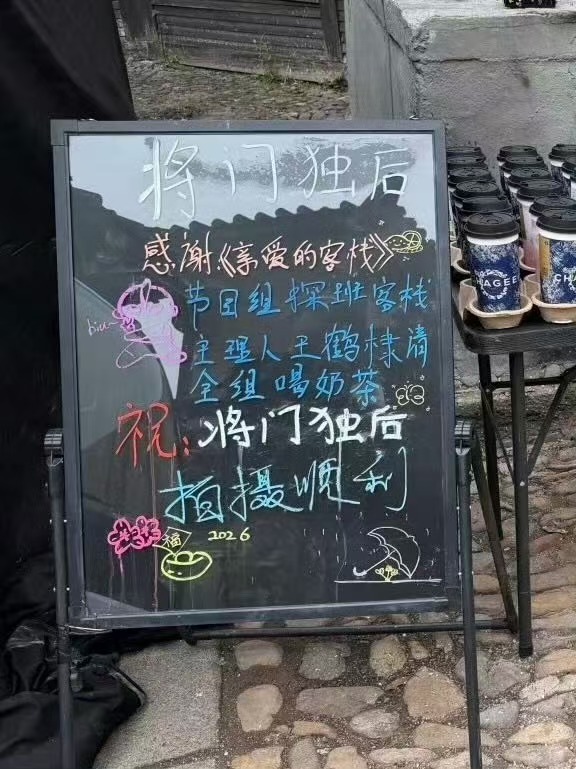 将门独后
感谢《亲爱的客栈》
节目组探班客栈
主理人王鹤棣请
全组喝奶茶
祝:将门独后
拍摄顺利
biu~
福
2026
CHAGEE
CHAGEE